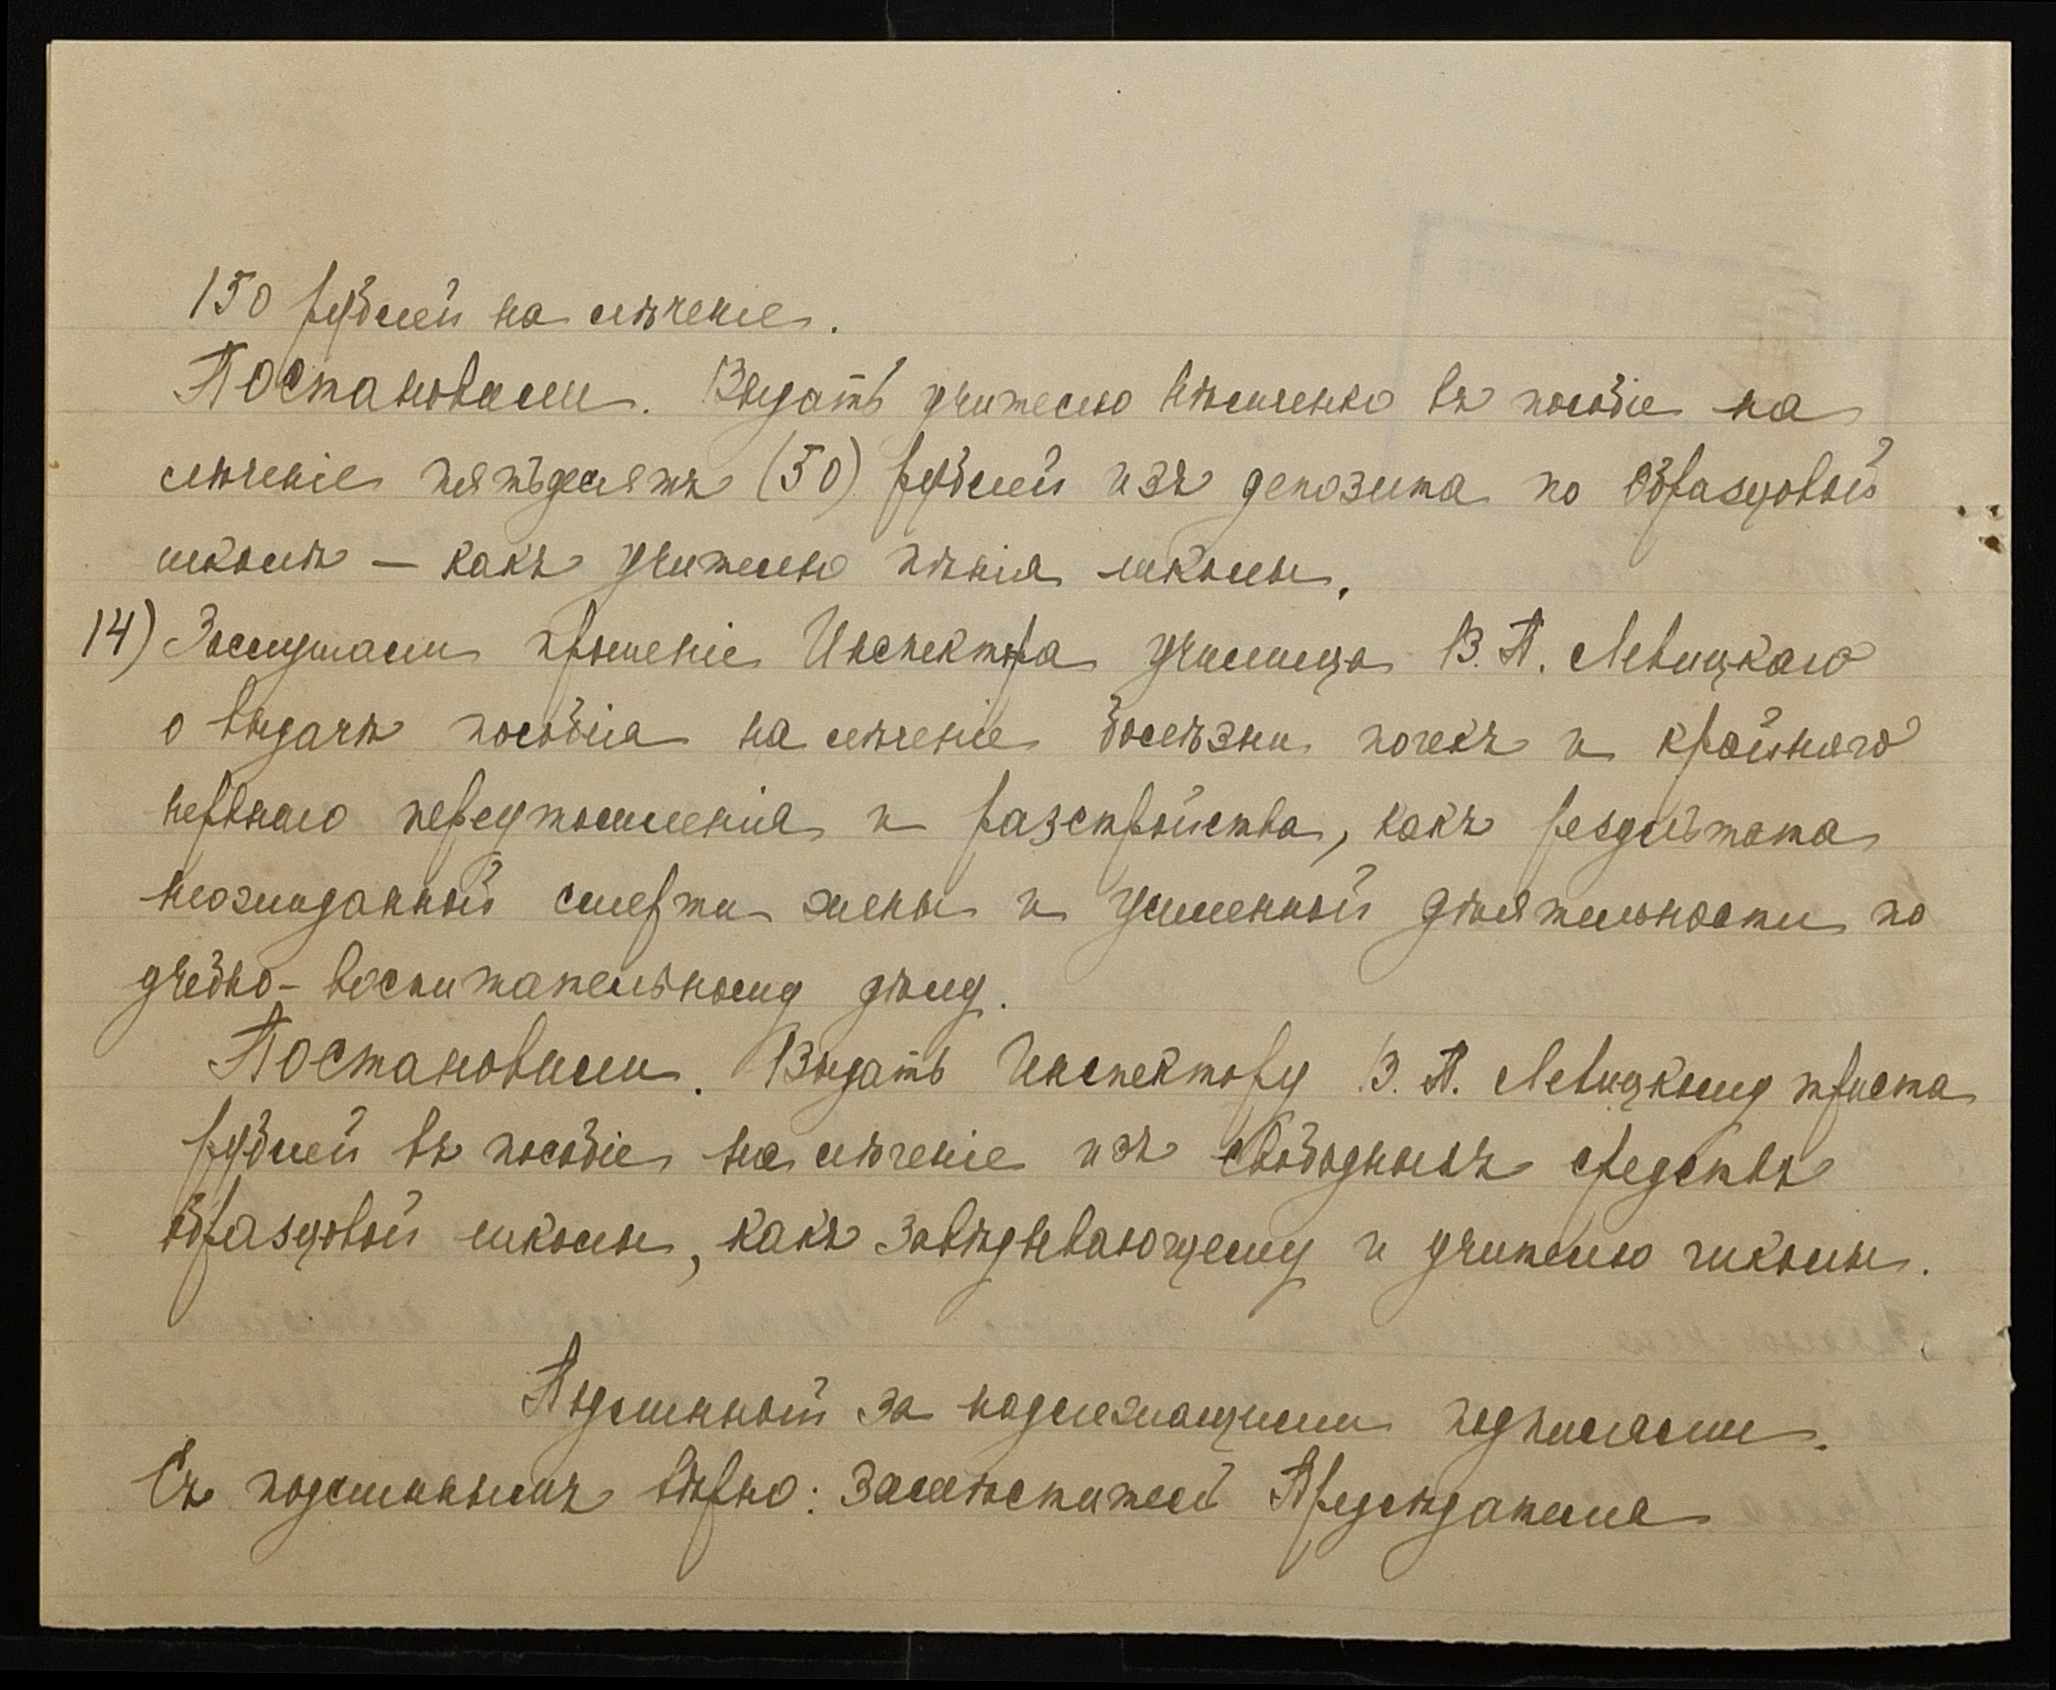 150 рублей на лѣченіе.
Постановили. Выдать учителю въ пособіе на
лѣченіе пятьдесятъ (50) рублей изъ депозита по Образцовой
школѣ — какъ учителю пѣнія школы.
14) Заслушали прошеніе Инспектора училища В. П. Левицкаго
о выдачѣ пособія на лѣченіе болѣзни почекъ и крайняго
нервнаго переутомленія и разстройства, какъ результата
неожиданной смерти жены и усиленной дѣятельности по
учебно-воспитательному дѣлу.
Постановили. Выдать Инспектору В. П. Левицкому триста
рублей въ пособіе на лѣченіе изъ свободныхъ средствъ
образцовой школы, какъ завѣдывающему и учителю школы.
Подлинный за надлежащими подписями.
Съ подлиннымъ вѣрно: Замѣститель Предсѣдателя